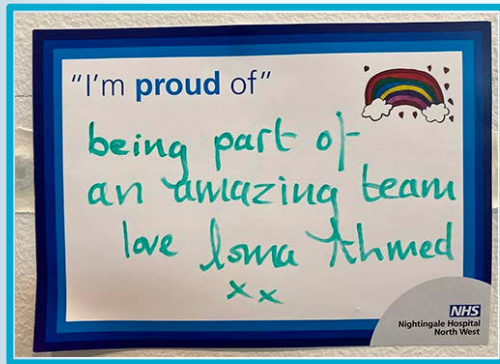 "I'm proud of"
being part of
an amazing team
love Ahmed
xx
NHS
Nightingale Hospital
North West